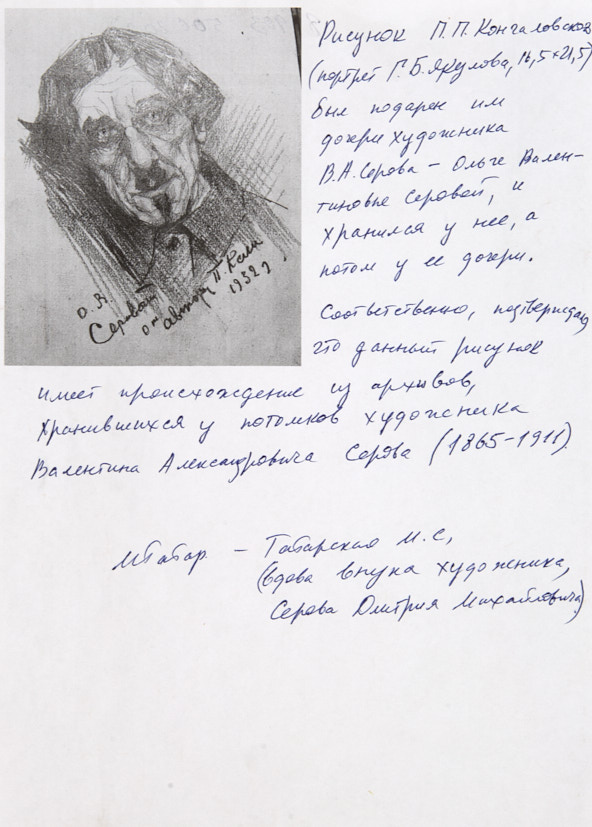 Рисунок П.П. Кончаловского
(портрет Г.Б. Якулова, 16,5×21,5)
был подарен им
дочери художника
В.А. Серова – Ольге Вален-
тиновне Серовой, и
хранился у нее, а
потом у ее дочери.
Соответственно, подтверждаю,
что данный рисунок
имеет происхождение из архивов,
хранившихся у потомков художника
Валентина Александровича Серова (1865-1911).
О.
Серовой
от автора П. Конч
1932 г
МТатар. – Татарская М.С,
(вдова внука художника,
Серова Дмитрия Михайловича)